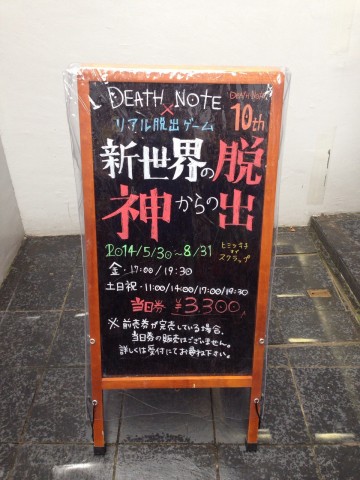 DEATH NOTE
×
リアル脱出ゲーム
DEATH NOTE
10th
新世界の
神からの
脱出
2014/5/30～8/31
ヒミツキチ
オブ
スクラップ
金・17:00/19:30
土日祝・11:00/14:00/17:00/19:30
当日券 ¥3,300
※前売券が完売している場合、
当日券の販売はございません。
詳しくは受付にてお尋ね下さい。